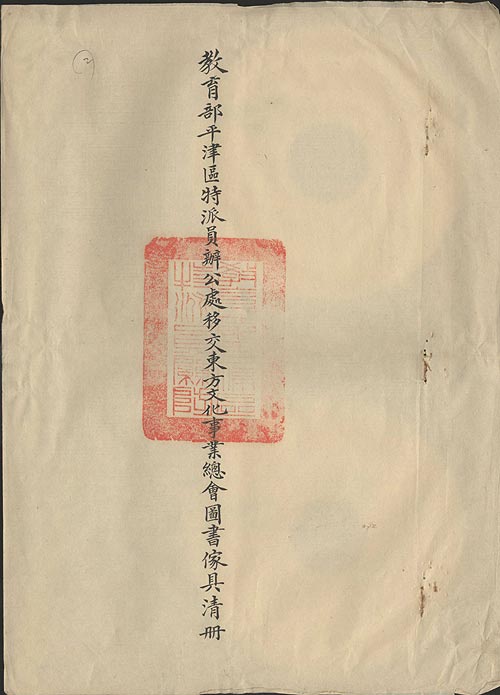 教育部平津區特派員辦公處移交東方文化事業總會圖書傢具清册